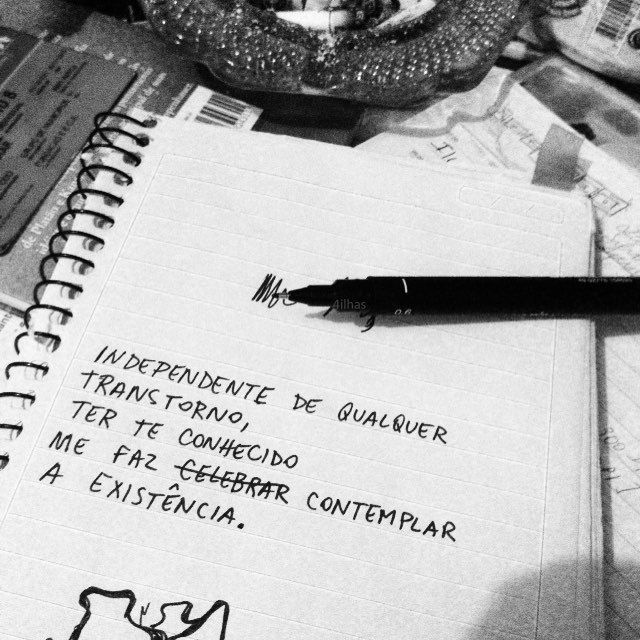 4ilhas
INDEPENDENTE DE QUALQUER
TRANSTORNO,
TER TE CONHECIDO
ME FAZ CELEBRAR CONTEMPLAR
A EXISTÊNCIA.